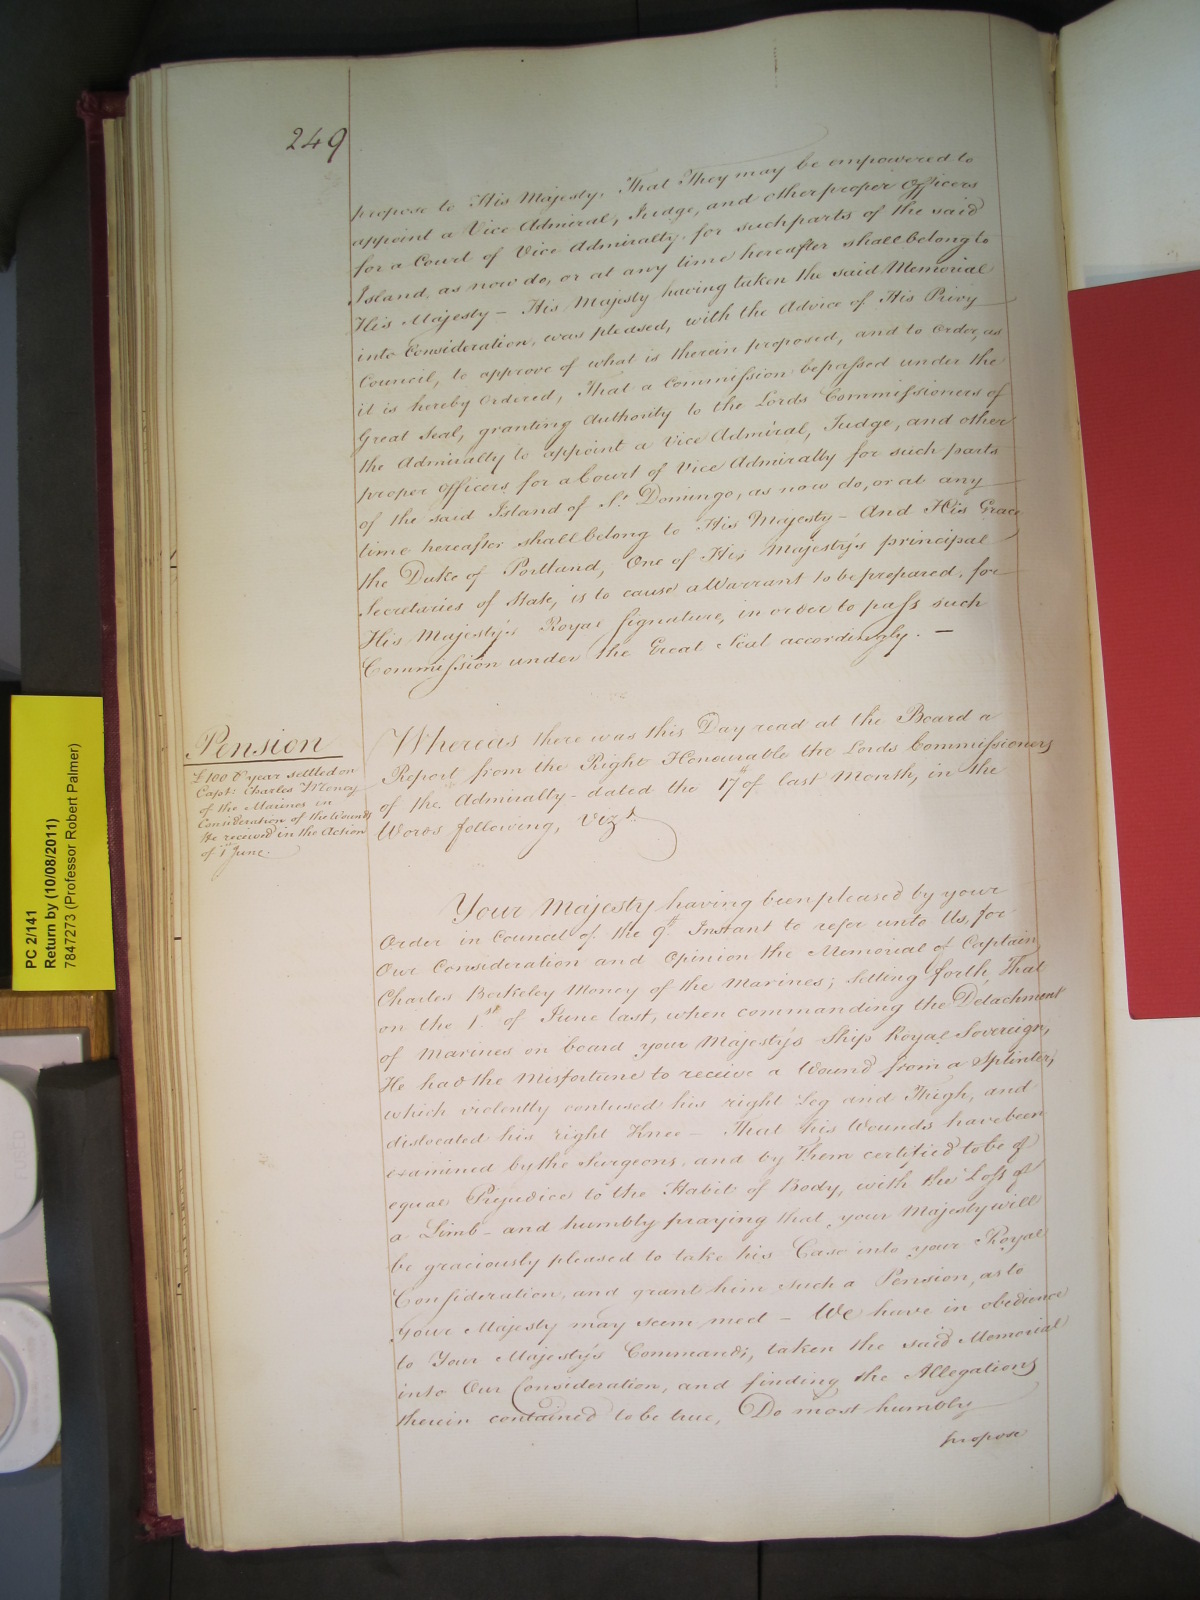 249
propose to His Majesty, That They may be empowered to
appoint a Vice Admiral, Judge, and other proper Officers
for a Court of Vice Admiralty for such parts of the said
Island, as now do, or at any time hereafter shall belong to
His Majesty – His Majesty having taken the said Memorial
into Consideration, was pleased, with the Advice of His Privy
Council, to approve of what is therein proposed, and to Order, as
it is hereby Ordered, That a Commission be passed under the
Great Seal, granting Authority to the Lords Commissioners of
the Admiralty to appoint a Vice Admiral, Judge, and other
proper Officers for a Court of Vice Admiralty for such parts
of the said Island of St Domingo, as now do, or at any
time hereafter shall belong to His Majesty – And His Grace
the Duke of Portland, One of His Majesty's principal
Secretaries of State, is to cause a Warrant to be prepared, for
His Majesty's Royal Signature, in order to pass such
Commission under the Great Seal accordingly. —
Pension
£100 ⅌ year settled on
Capt: Charles Money
of the Marines in
Consideration of the Wounds
He received in the Action
of 1st June.
Whereas there was this Day read at the Board a
Report from the Right Honourable the Lords Commissioners
of the Admiralty – dated the 17th of last Month, in the
Words following, Vizt
Your Majesty having been pleased by your
Order in Council of the 9th Instant to refer unto Us, for
Our Consideration and Opinion the Memorial of Captain
Charles Berkeley Money of the Marines; setting forth, That
on the 1st of June last, when commanding the Detachment
of Marines on board your Majesty's Ship Royal Sovereign,
He had the Misfortune to receive a Wound from a Splinter,
which violently contused his right Leg and Thigh, and
dislocated his right Knee – That his Wounds have been
examined by the Surgeons, and by Them certified to be of
equal Prejudice to the Habit of Body, with the Loss of
a Limb – and humbly praying that your Majesty will
be graciously pleased to take his Case into your Royal
Consideration, and grant him such a Pension, as to
Your Majesty may seem meet – We have in obedience
to Your Majesty's Commands, taken the said Memorial
into Our Consideration, and finding the Allegations
therein contained to be true, Do most humbly
propose
PC 2/141
Return by (10/08/2011)
7847273 (Professor Robert Palmer)